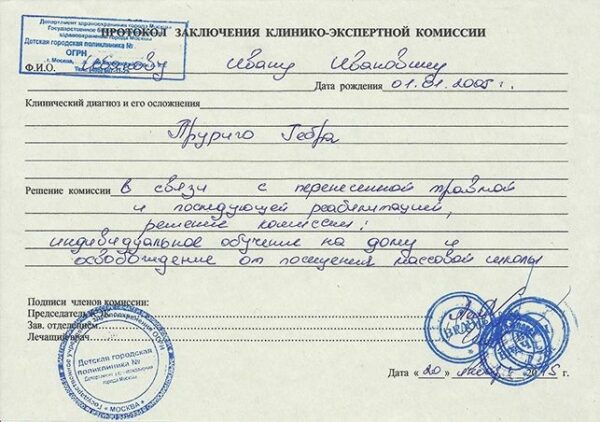 ПРОТОКОЛ ЗАКЛЮЧЕНИЯ КЛИНИКО-ЭКСПЕРТНОЙ КОМИССИИ
Департамент здравоохранения города Москвы
Государственное
здравоохранения города Москвы
Детская городская поликлиника №
ОГРН
г. Москва,
Ф.И.О. Иванову Ивану Ивановичу
Дата рождения 01.01.2005г.
Клинический диагноз и его осложнения
Решение комиссии в связи с перенесенной травмой
и последующей реабилитацией,
решение комиссии:
индивидуальное обучение на дому и
освобождение от посещения массовой школы
Подписи членов комиссии:
Председатель
Зав. отделением
Лечащий врач
Детская городская
поликлиника №
города Москвы
* МОСКВА *
Дата «20» 2015 г.